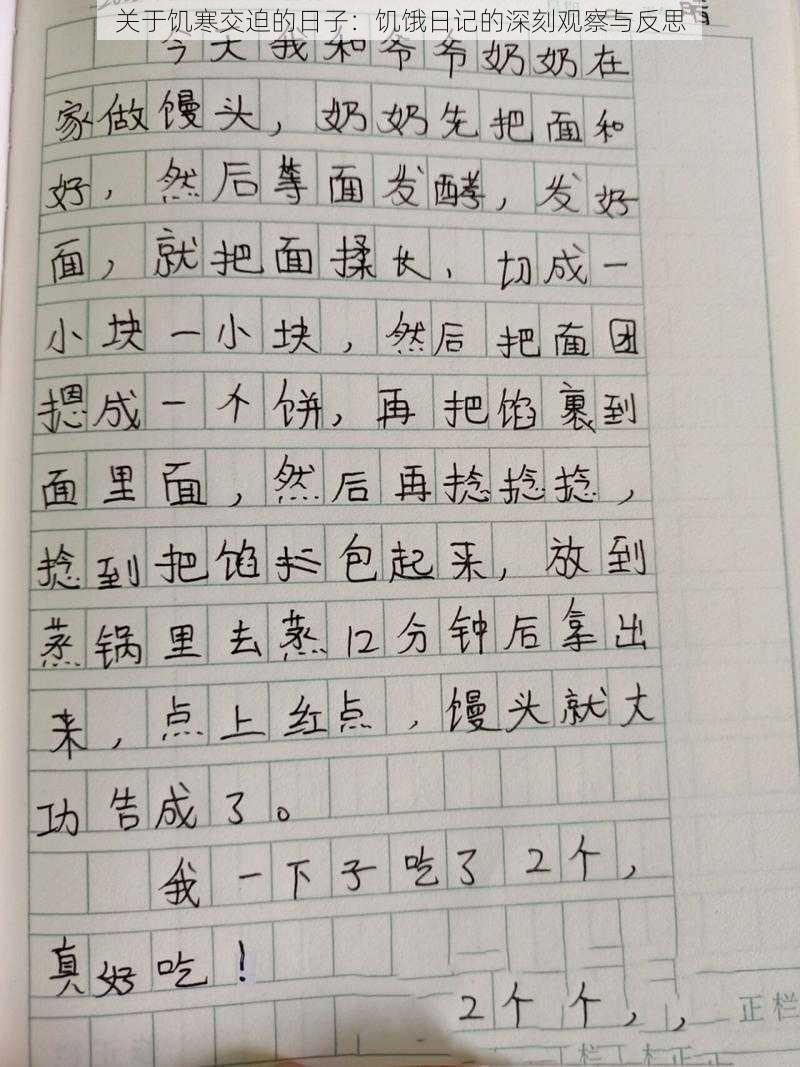 关于饥寒交迫的日子：饥饿日记的深刻观察与反思
今天我和爷爷奶奶在
家做馒头，奶奶先把面和
好，然后等面发酵，发好
面，就把面揉长，切成一
小块一小块，然后把面团
摁成一个饼，再把馅裹到
面里面，然后再捻捻捻，
捻到把馅拦包起来，放到
蒸锅里去蒸12分钟后拿出
来，点上红点，馒头就大
功告成了。
我一下子吃了2个，
真好吃！
2个个，，
正栏